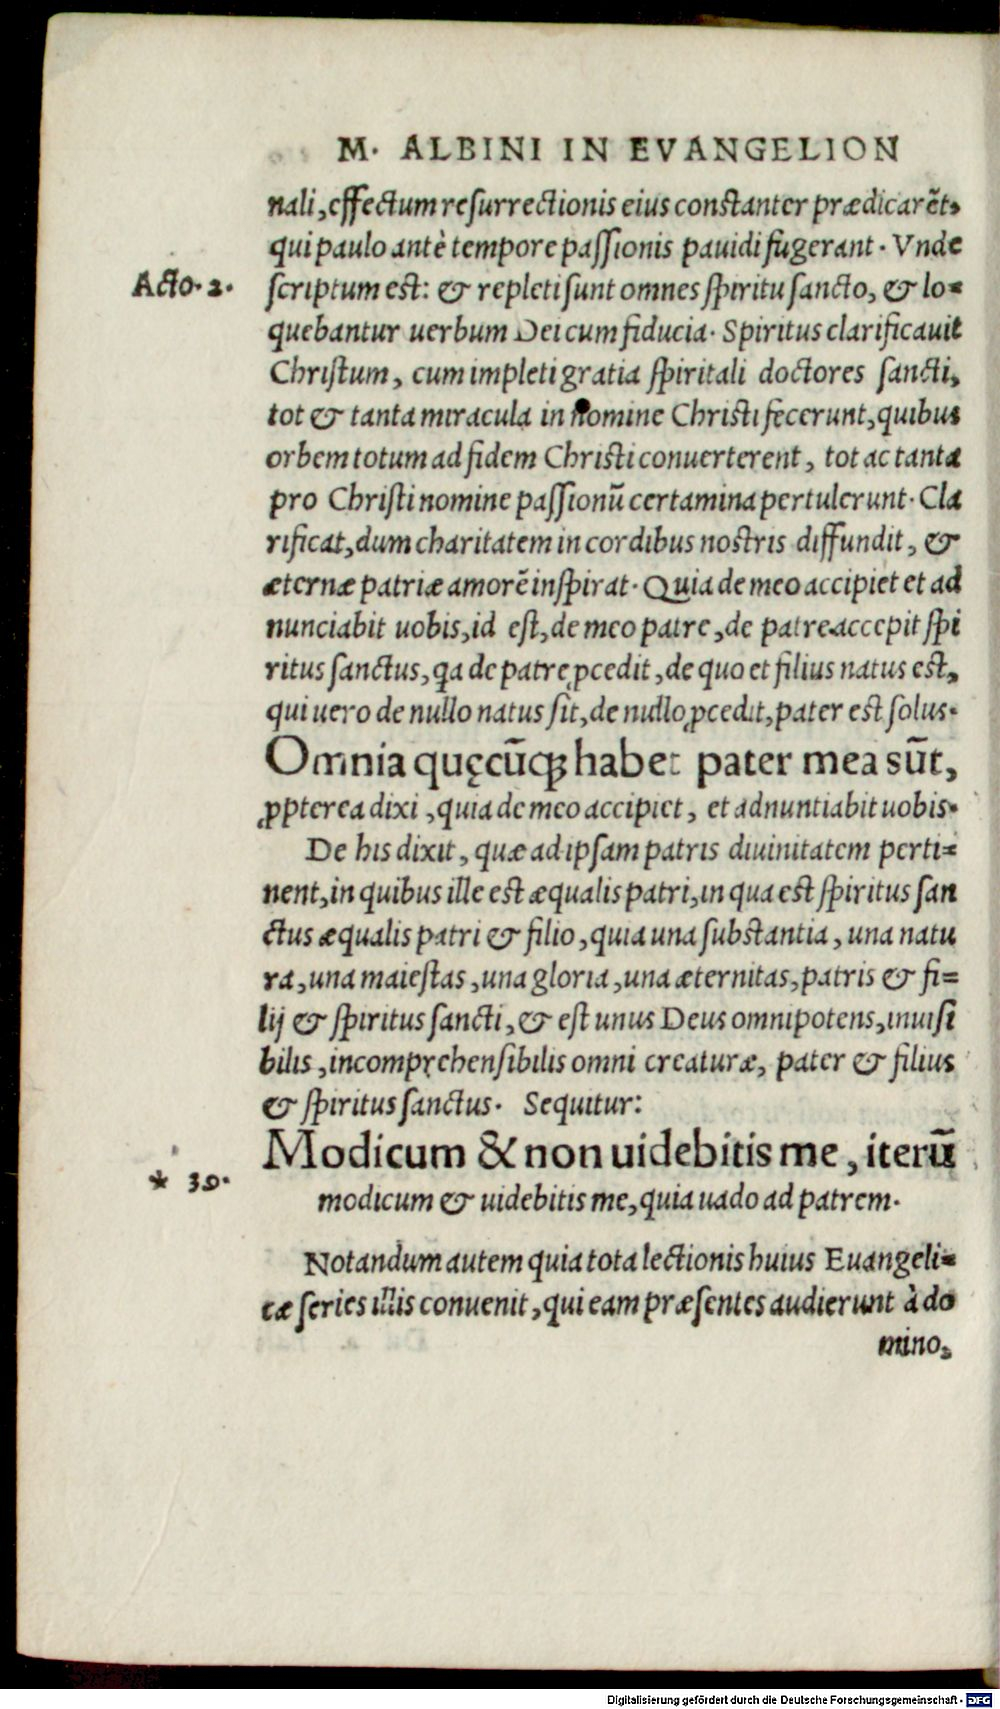 M. ALBINI IN EVANGELION
nali, effectum resurrectionis eius constanter prædicarēt,
qui paulo antè tempore passionis pauidi fugerant. Vnde
Acto. 2.
scriptum est: & repleti sunt omnes spiritu sancto, & lo=
quebantur uerbum Dei cum fiducia. Spiritus clarificauit
Christum, cum impleti gratia spiritali doctores sancti,
tot & tanta miracula in nomine Christi fecerunt, quibus
orbem totum ad fidem Christi conuerterent, tot ac tanta
pro Christi nomine passionū certamina pertulerunt. Cla
rificat, dum charitatem in cordibus nostris diffundit, &
æternæ patriæ amorē inspirat. Quia de meo accipiet et ad
nunciabit uobis, id est, de meo patre, de patre accepit spi
ritus sanctus, qa de patre ꝓcedit, de quo et filius natus est,
qui uero de nullo natus sit, de nullo ꝓcedit, pater est solus.
Omnia quęcūqꝫ habet pater mea sūt,
ꝓpterea dixi, quia de meo accipiet, et adnuntiabit uobis.
De his dixit, quæ ad ipsam patris diuinitatem perti=
nent, in quibus ille est æqualis patri, in qua est spiritus san
ctus æqualis patri & filio, quia una substantia, una natu
ra, una maiestas, una gloria, una æternitas, patris & fi=
lij & spiritus sancti, & est unus Deus omnipotens, inuisi
bilis, incompręhensibilis omni creaturæ, pater & filius
& spiritus sanctus. Sequitur:
Modicum & non uidebitis me, iterū
* 39.
modicum & uidebitis me, quia uado ad patrem.
Notandum autem quia tota lectionis huius Euangeli=
cæ series illis conuenit, qui eam præsentes audierunt à do
mino,
Digitalisierung gefördert durch die Deutsche Forschungsgemeinschaft - DFG